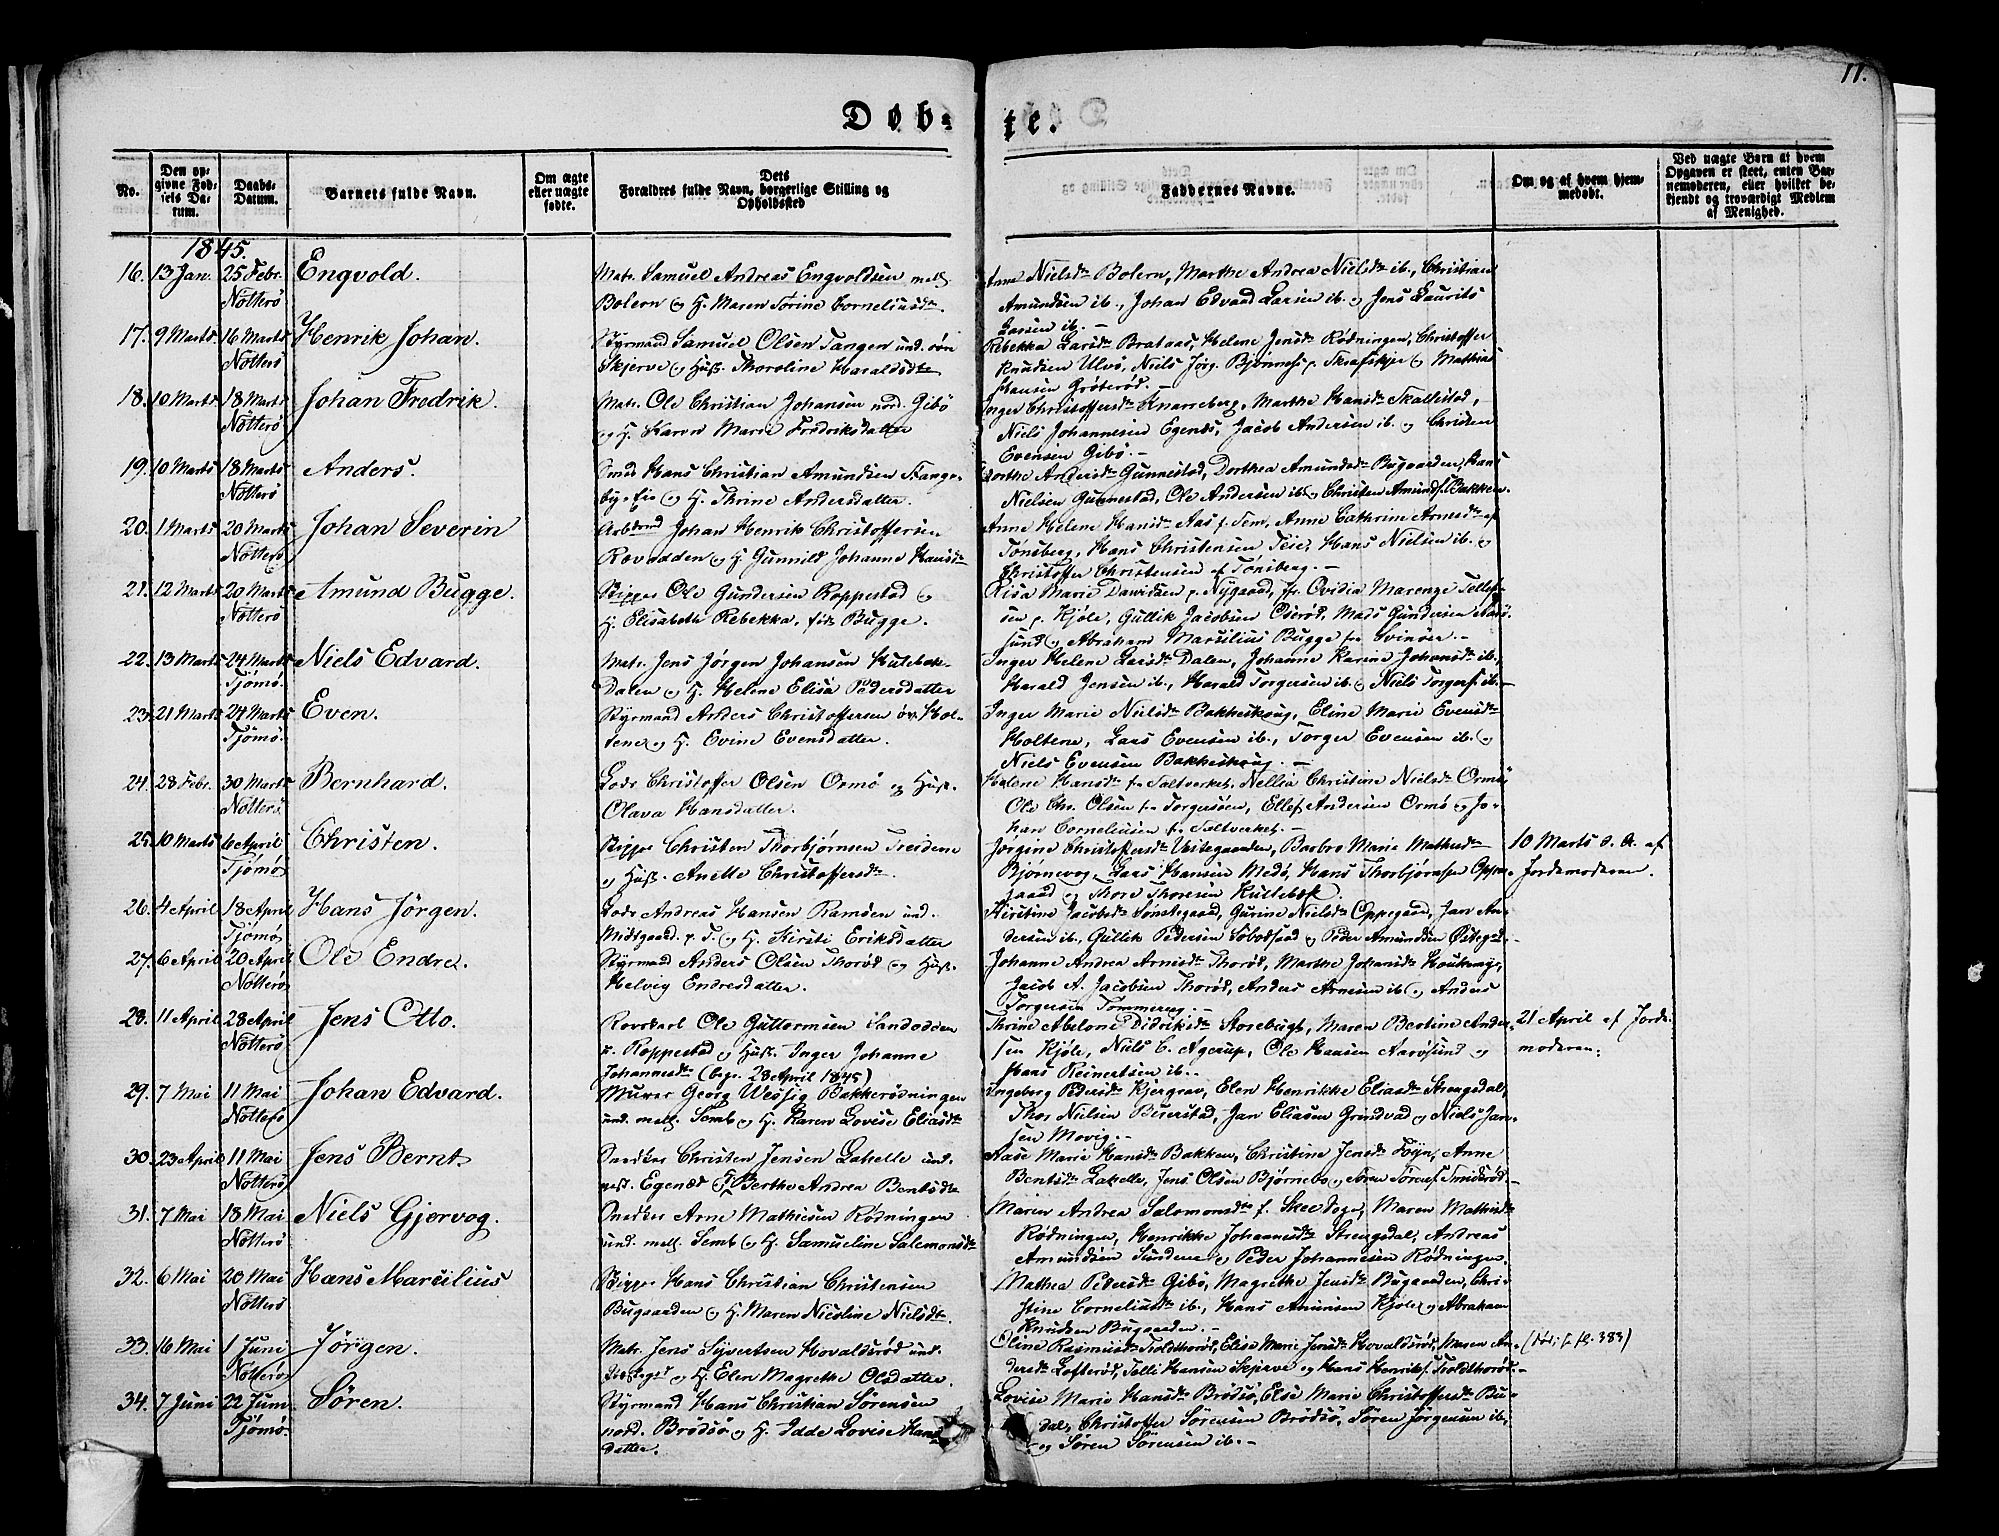 11.
Døb-te.
No.
Den op-
givne Fød-
sels Da-
tum.
Daabs-
Datum.
Barnets fulde Navn.
Om ægte
eller uægte
fødte.
Dets
Forældres fulde Navn, borgerlige Stilling og
Opholdssted
Faddernes Navne.
Om og af hvem hjem-
medøbt.
Ved uægte Barn at hvem
Opgaven er skeet, enten Bar-
nemoderen, eller hvilket be-
kjendt og troværdigt Medlem
af Menighed.
1845.
16. 13 Jan. 25 Febr. Nötterö Engvold.
Matr. Samuel Andreas Engvoldsen mell.
Bolern og H. Maren Sörine Corneliusdtr.
Anne Nielsdtr Bolern, Marthe Andrea Nielsdtr ib., Christian
Amundsen ib., Johan Edvard Larsen ib. og Jens Laurits
Larsen ib. –
17. 9 Marts 16 Marts Nötterö Henrik Johan.
Styrmand Samuel Olsen Tangen und. söre
Skjerve og Hust. Thoroline Haraldsdtr
Rebekka Larsdtr Brataas, Helene Jensdtr Rödningen, Christoffer
Knudsen Ulvö, Niels Jörg. Bjönness p. Skrafskjer og Mathias
Hansen Gröteröd. –
18. 10 Marts 18 Marts Nötterö Johan Fredrik.
Matr. Ole Christian Johansen nord. Gibö
og H. Karen Marie Fredriksdatter
Inger Christoffersdtr Knarreberg, Marthe Hansdtr Skallestad,
Niels Johannesen Egenes, Jacob Andersen ib. og Christen
Evensen Gibö. –
19. 10 Marts 18 Marts Nötterö Anders.
Smed Hans Christian Amundsen
og H. Thrine Andersdatter.
Dorthe Andersdtr Gunnestad, Dorthea Amundsdtr Bugaarden, Hans
Nielsen Gunnestad, Ole Andersen ib. og Christen Amunds. Bakken.
20. 1 Marts 20 Marts Nötterö Johan Severin
Arbmd Johan Henrik Christoffersen
Ravnodden og H. Gunnild Johanne Hansdtr
Anne Helene Hansdtr Aas p. Sem, Anne Cathrine Arnesdtr af
Tönsberg, Hans Christensen Teie, Hans Nielsen ib. og
Christoffer Christensen af Tönsberg. –
21. 12 Marts 20 Marts Nötterö Amund Bugge.
Skipper Ole Gundersen Roppestad og
H. Elisabeth Rebekka, föd Bugge.
Risa Marie Davidsen p. Nygaard, fr. Ovidia Marenze Tellef-
sen p. Kjöle, Gullik Jacobsen Oseröd, Mads Gundersen Aarö-
sund og Abraham Marsilius Bugge fra Svinöer. –
22. 13 Marts 24 Marts Tjömö. Niels Edvard.
Matr. Jens Jörgen Johansen Kulebek-
Dalen og H. Helene Elisa Pedersdatter
Inger Helene Larsdtr Dalen, Johanne Karine Johansdtr ib.,
Harald Jensen ib., Harald Torgersen ib. og Niels Torgers. ib. –
23. 21 Marts 24 Marts Tjömö. Even.
Styrmand Anders Christoffersen öv. Hol-
tene og H. Evine Evensdatter.
Inger Marie Nielsdtr Bakkeskoug, Eline Marie Evensdtr
Holtene, Lars Evensen ib., Torger Evensen ib. og
Niels Evensen Bakkeskoug. –
24. 28 Febr. 30 Marts Nötterö Bernhard.
Lods Christoffer Olsen Ormö og Hust.
Olava Hansdatter.
Helene Hansdtr fra Saltverket, Nellia Christine Nielsdtr Ormö
Ole Chr. Olsen fra Torgersöen, Ellef Andersen Ormö og Jo-
han Corneliusen fra Saltverket. –
25. 10 Marts 6 April Tjömö Christen.
Skipper Christen Thorbjörnsen Treidene
og Hust. Anette Christoffersdtr
Jörgine Christoffersdtr Vestegaarden, Barbro Marie Mathisdtr
Bjönevog, Lars Hansen Medö, Hans Thorbjörnsen Oppe-
gaard og Thore Thoresen Kullebæk.
10 Marts d. A. af
Jordemoderen.
26. 4 April 18 April Tjömö Hans Jörgen.
Lods Andreas Hansen Ramsen und.
Midtgaard p. T. og H. Kirsti Eriksdatter
Kirstine Jacobsdtr Sönstegaard, Gurine Nielsdtr Oppegaard, Jan An-
dersen ib., Gullik Pedersen Sobodsaad og Peder Amundsen Östegd. –
27. 6 April 20 April Nötterö Ole Endre.
Styrmand Anders Olsen Thoröd og Hust.
Helvig Endresdatter.
Johanne Andrea Arnisdtr Thoröd, Marthe Johansdtr
Jacob A. Jacobsen Thoröd, Anders Arnesen ib. og Anders
Torgersen Tommereg. –
28. 11 April 28 April Nötterö Jens Otto.
Rorskarl Ole Guttormsen Sandodden
p. Roppestad og Hust. Inger Johanne
Johannesdtr (begr. 28 April 1845)
Thrine Abelone Didriksdtr Storebugt, Maren Bertine Ander-
sen Kjöle, Niels C. Agerup, Ole Hansen Aarösund og
Hans Reinertsen ib. –
21 April af Jorde-
moderen.
29. 7 Mai 11 Mai Nötterö Johan Edvard.
Murer Georg Wessig Bakkerödningen
und. mell. Semb og H. Karen Lovise Eliasdtr
Ingeborg Pedersdtr Kjergrav, Elen Henrikke Eliasdtr Strengsdal,
Thor Nielsen Buerstad, Jan Eliasen Grindvad og Niels Jan-
sen Movig. –
30. 23 April 11 Mai Nötterö Jens Bernt.
Snedker Christen Jensen Lahelle und.
vest. Egenæs og Berthe Andrea Bentsdtr
Aase Marie Hansdtr Bakken, Christine Jensdtr Föyn, Anne
Bentsdtr Lahelle, Jens Olsen Björnebo og Sören Sörens. Smideröd. –
31. 7 Mai 18 Mai Nötterö Niels Gjervog.
Snedker Arne Mathiesen Rödningen
und. mell. Semb og H. Samueline Salomonsdtr
Maren Andrea Salomonsdtr f. Skee Sogn, Maren Mathisdtr
Rödningen, Henrikke Johannesdtr Strengsdal, Andreas
Amundsen Sundene og Peder Johannesen Rödningen.
32. 6 Mai 20 Mai Nötterö Hans Marsilius
Skipper Hans Christian Christensen
Bugaarden og H. Maren Nicoline Nielsdtr.
Mathea Pedersdtr Gibö, Magrethe Jensdtr Bugaarden, Chri-
stine Corneliusdtr ib., Hans Amunsen Kjöle og Abraham
Knudsen Bugaarden. –
33. 16 Mai 1 Juni Nötterö Jörgen.
Matr. Jens Syvertsen Hovaldsröd und.
og H. Elen Magrethe Olsdatter.
Oline Rasmusdtr Skoldthoröd, Elise Marie Jensdtr Hovaldsröd, Maren An-
dersdtr Lofteröd, Telle Hansen Skjerve og Hans Henriks. Skoldthoröd. –
34. 7 Juni 22 Juni Tjömö. Sören.
Styrmand Hans Christian Sörensen
nord. Brödsö og H. Idde Lovise Hans-
datter.
Lovise Marie Hansdtr Brödsö, Else Marie Christoffersdtr Bu-
dal, Christoffer Sörensen Brödsö, Sören Jörgensen ib.,
og Sören Sörensen ib. –